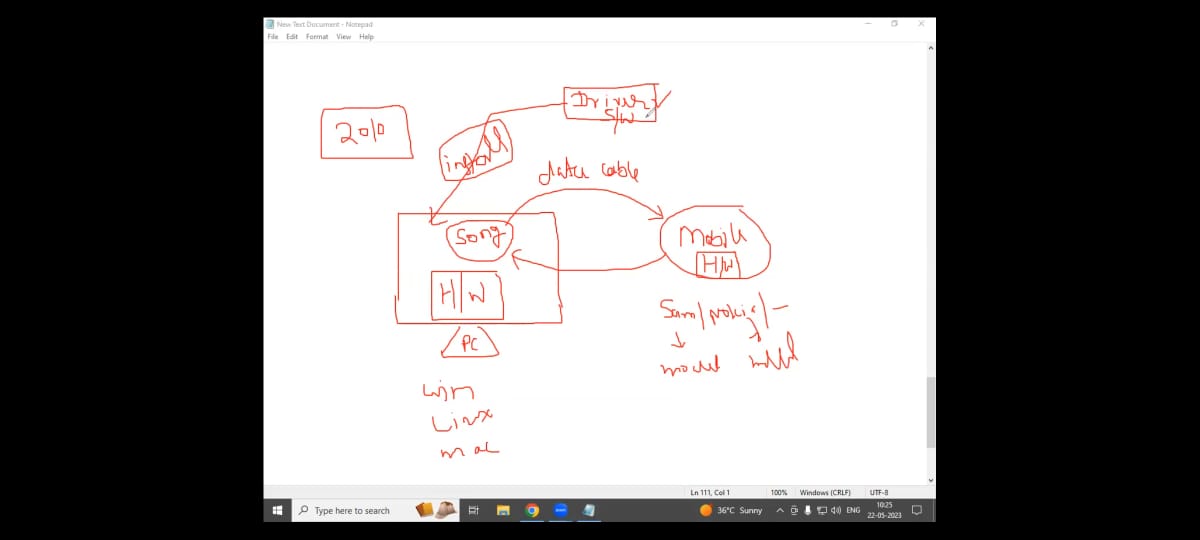 New Text Document - Notepad
File Edit Format View Help
Driver
S/W
2010
install
data cable
Song
Mobile
H/W
H/W
Sam/nokia/-
PC
model
win
Linux
mac
Ln 111, Col 1 100% Windows (CRLF) UTF-8
Type here to search
36°C Sunny ENG
10:25
22-05-2023